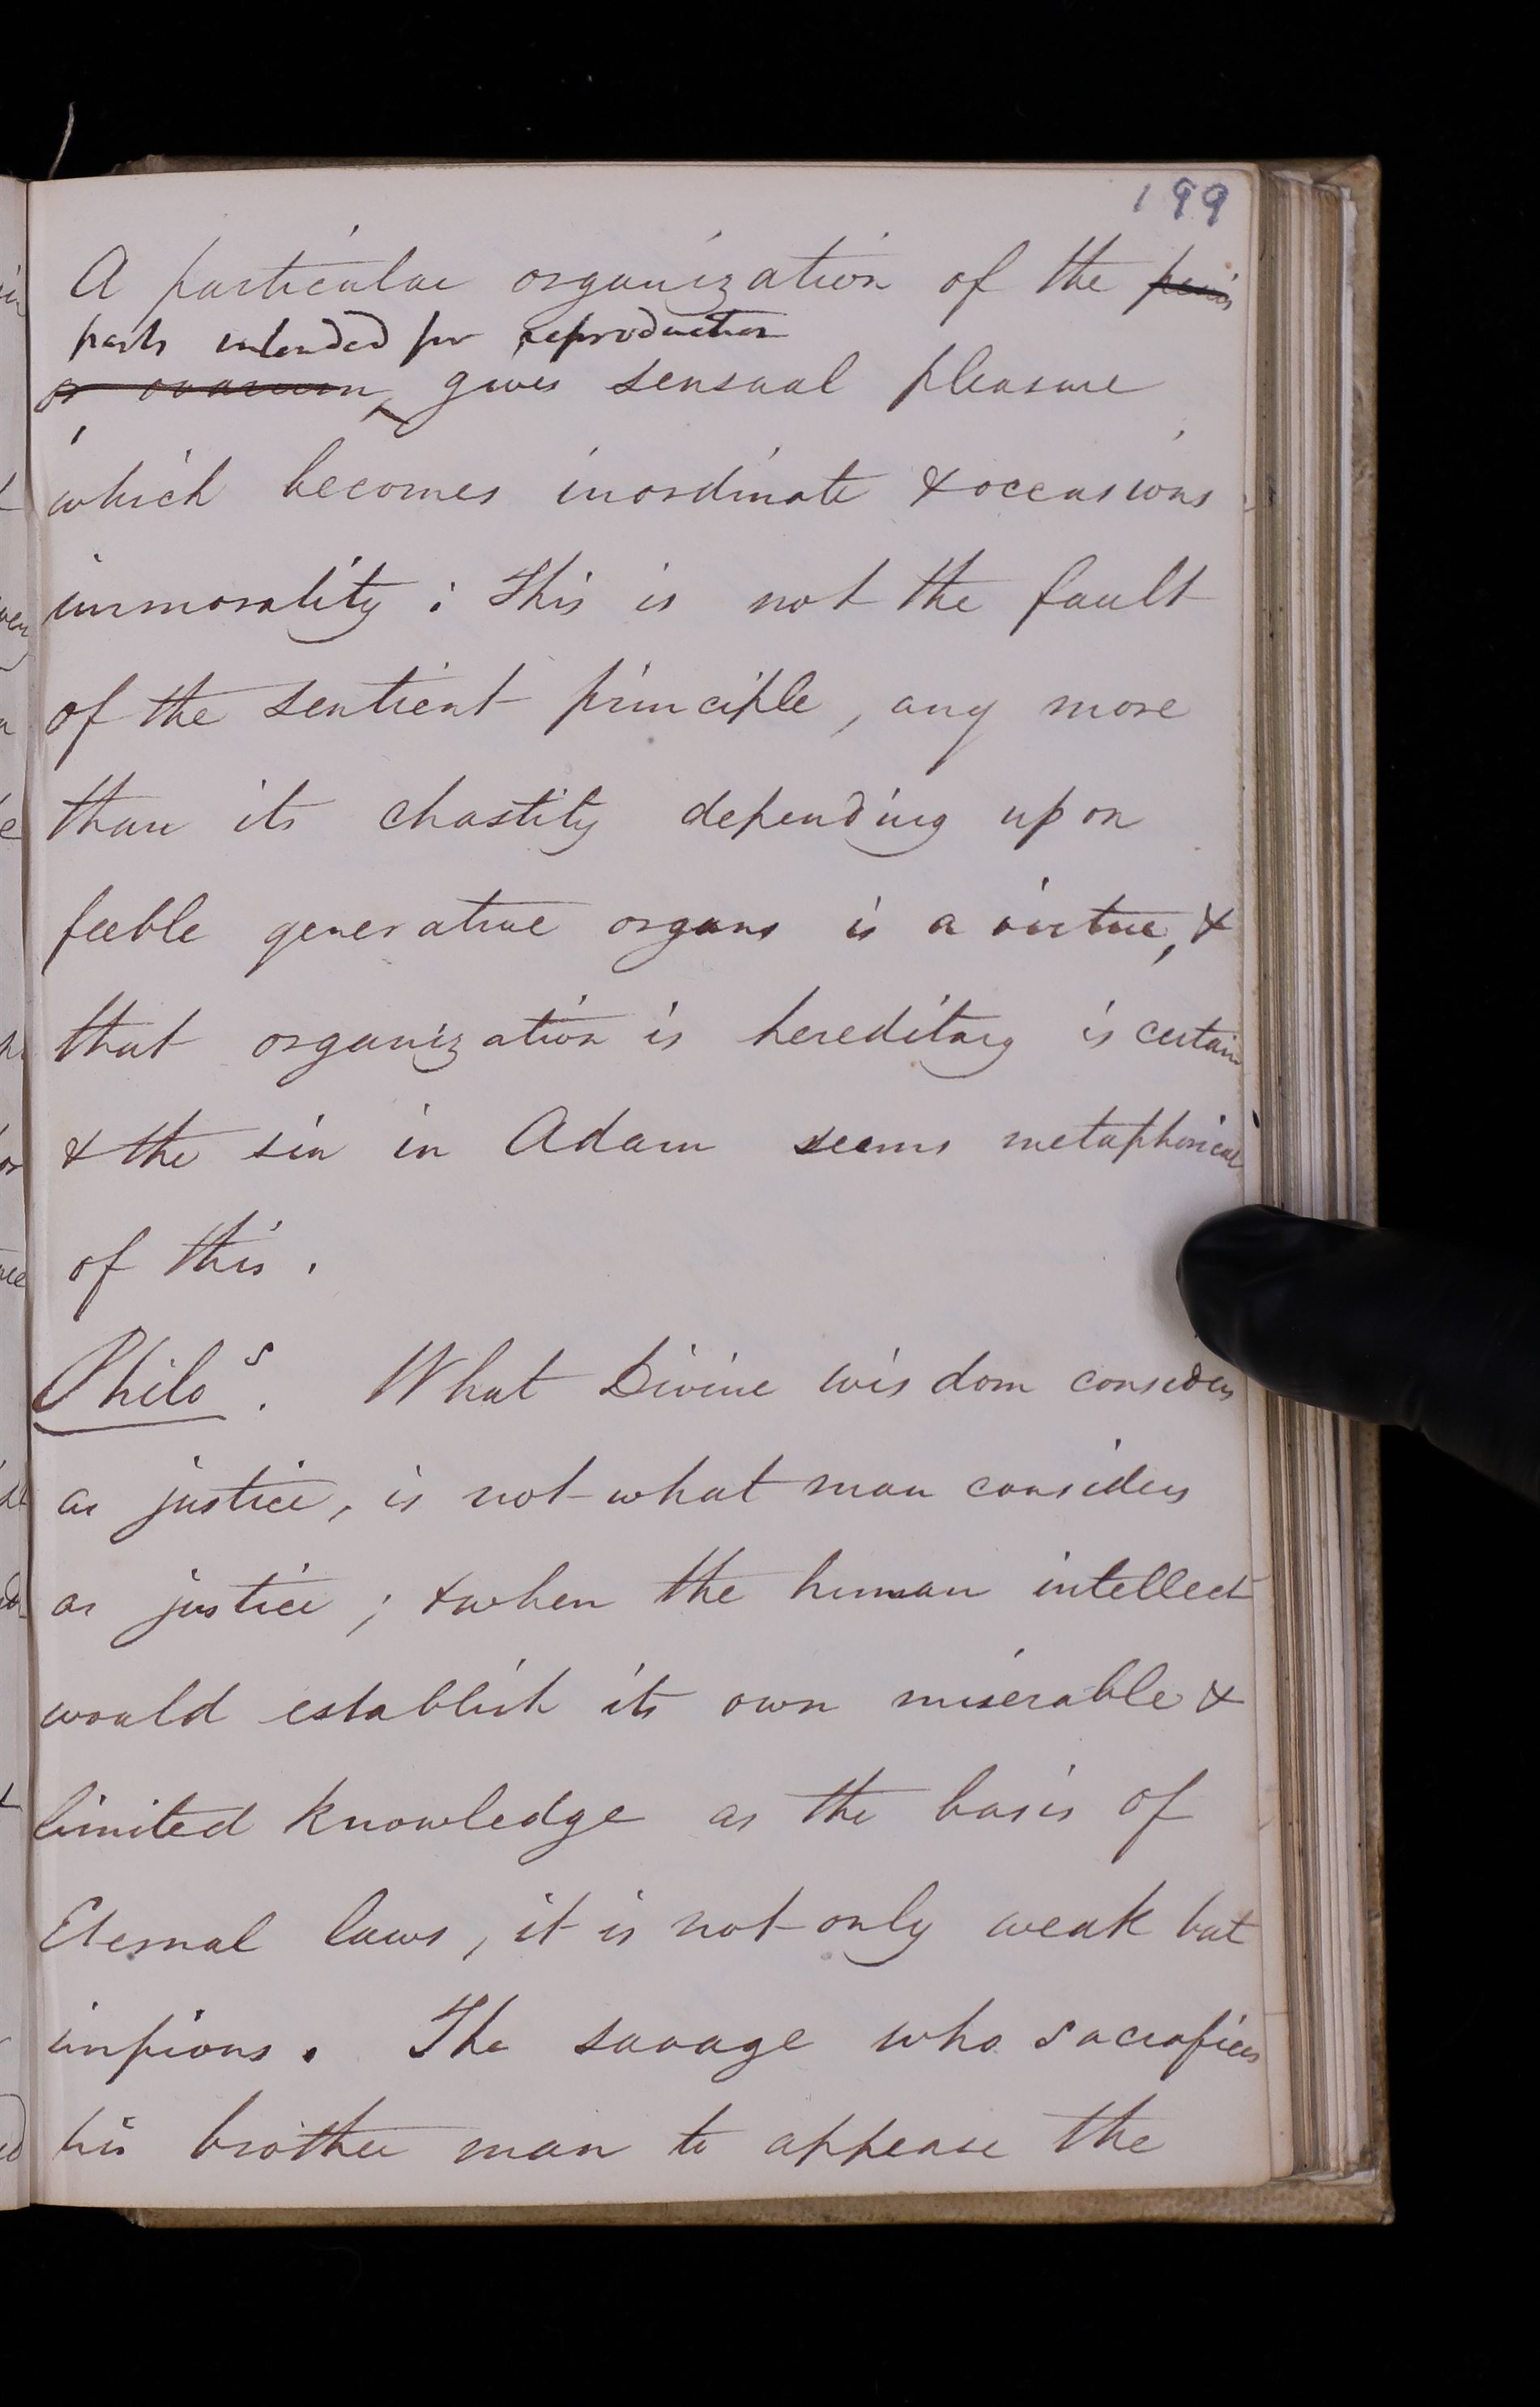 199
A particular organization of the penis
parts intended for reproduction
or ovarium, gives sensual pleasure
which becomes inordinate & occasions
immorality : This is not the fault
of the sentient principle, any more
than its chastity depending upon
feeble generative organs is a virtue, &
that organization is hereditary is certain
& the sin in Adam seems metaphorical
of this.
Philos. What Divine wisdom considers
as justice, is not what man considers
as justice ; & when the human intellect
would establish its own miserable &
limited knowledge as the basis of
Eternal laws, it is not only weak but
impious. The savage who sacrafices
his brother man to appease the